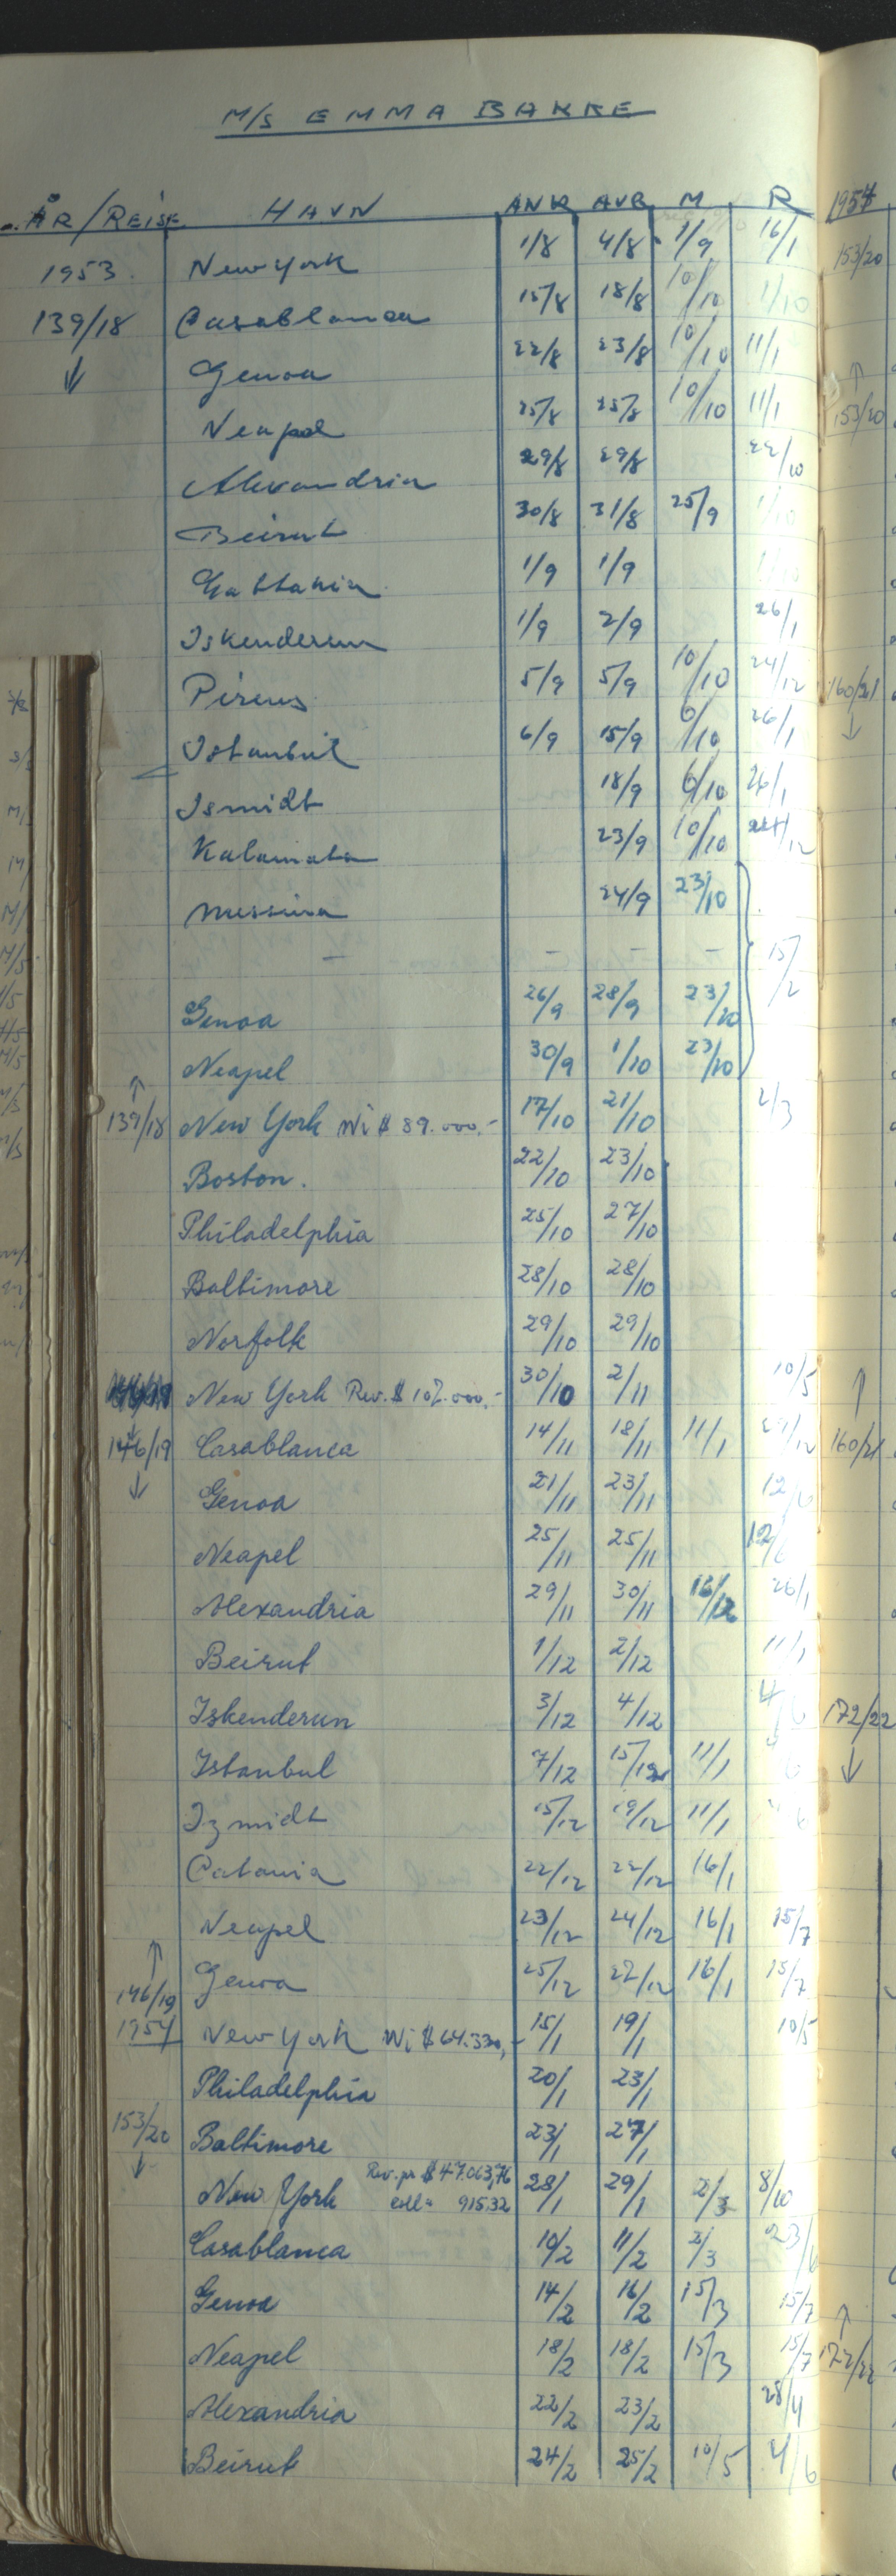 M/S EMMA BAKKE
ÅR/REISE HAVN ANK AVG M R
1953 New York 1/8 4/8 1/9 16/1
139/18 Casablanca 15/8 18/8 10/10 1/10
↓ Genoa 22/8 23/8 10/10 11/1
Neapel 25/8 25/8 10/10 11/1
Alexandria 29/8 29/8 22/10
Beirut 30/8 31/8 25/9 1/10
1/9 1/9
Iskenderun 1/9 2/9 26/1
Pireus 5/9 5/9 10/10 24/12
Istanbul 6/9 15/9 6/10 26/1
Ismidt 18/9 6/10 26/1
Kalamata 23/9 10/10 24/12
Messina 24/9 23/10
— — — — 15/2
Genoa 26/9 28/9 23/10
Neapel 30/9 1/10 23/10
↑
139/18 New York Wi $ 89.000,- 17/10 21/10 2/3
Boston. 22/10 23/10
Philadelphia 25/10 27/10
Baltimore 28/10 28/10
Norfolk 29/10 29/10
New York Rev. $ 107.000,- 30/10 2/11 10/5
146/19 Casablanca 14/11 18/11 11/1
↓ Genoa 21/11 23/11
Neapel 25/11 25/11 12/6
Alexandria 29/11 30/11 16/12 26/1
Beirut 1/12 2/12 11/1
Iskenderun 3/12 4/12 4/6
Istanbul 7/12 15/12 11/1
Izmidt 15/12 19/12 11/1
Catania 22/12 22/12 16/1
Neapel 23/12 24/12 16/1 15/7
↑ Genoa 25/12 27/12 16/1 15/7
146/19
1954 New York Wi $ 64.330,- 15/1 19/1 10/5
Philadelphia 20/1 23/1
153/20 Baltimore 23/1 27/1
↓ New York Rev. pr $ 47.063,76 28/1 29/1 2/3 8/10
coll= 915.32
Casablanca 10/2 11/2 2/3 23/6
Genoa 14/2 16/2 15/3 15/7
Neapel 18/2 18/2 15/3 15/7
Alexandria 22/2 23/2 28/4
Beirut 24/2 25/2 10/5 4/6
1954
153/20
↑
153/20
160/21
↓
↑
160/21
172/22
↓
↑
172/22